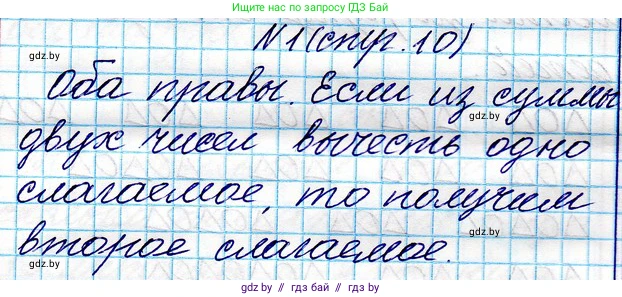 Ищите нас по запросу ГДЗ Бай
N1(стр.10)
gdz.by
Оба правы. Если из суммы
gdz.by
двух чисел вычесть одно
gdz.by
слагаемое, то получим
gdz.by
второе слагаемое.
gdz.by
gdz.by
gdz.by // гдз бай // гдз by